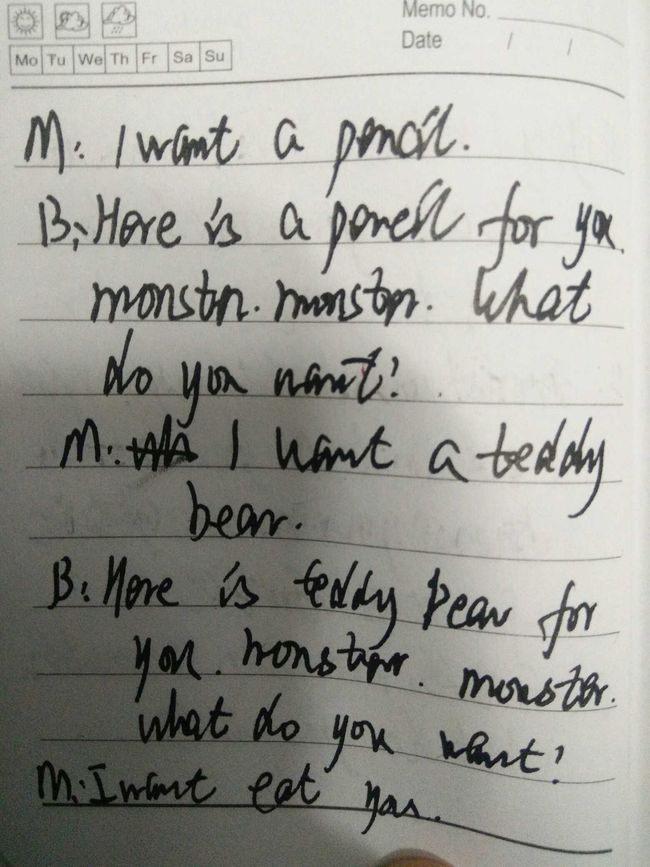 Memo No.
Date / /
Mo Tu We Th Fr Sa Su
M: I want a pencil.
B: Here is a pencil for you.
monster. monster. What
do you want?
M: I want a teddy
bear.
B: Here is teddy bear for
you. monster. monster.
what do you want?
M: I want eat you.